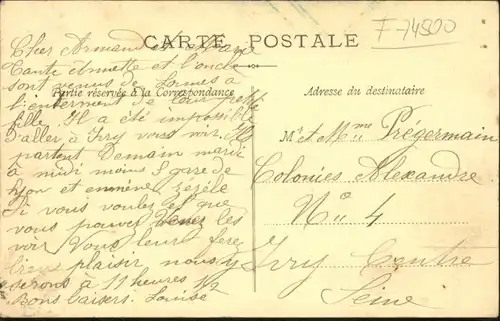 F 74500
CARTE POSTALE
Cher Armand et Marie
Tante Annette et l'oncle
sont venus de Lormes a
Partie réservée à la Correspondance
l'enterment de leur petite
fille. Il a été impossible
d'aller à Ivry vous voir. Ils
partent Demain mardi
a midi moins 5 gare de
Lyon et emmène
Si vous voulez et que
vous pouvez Venez les
voir Vous leur fere
bien plaisir nous y
serons à 11 heures 1/2
Bons baisers. Louise
Adresse du destinataire
Mr et Mme Prégermain
Colonies Alexandre
No 4
Ivry Centre
Seine